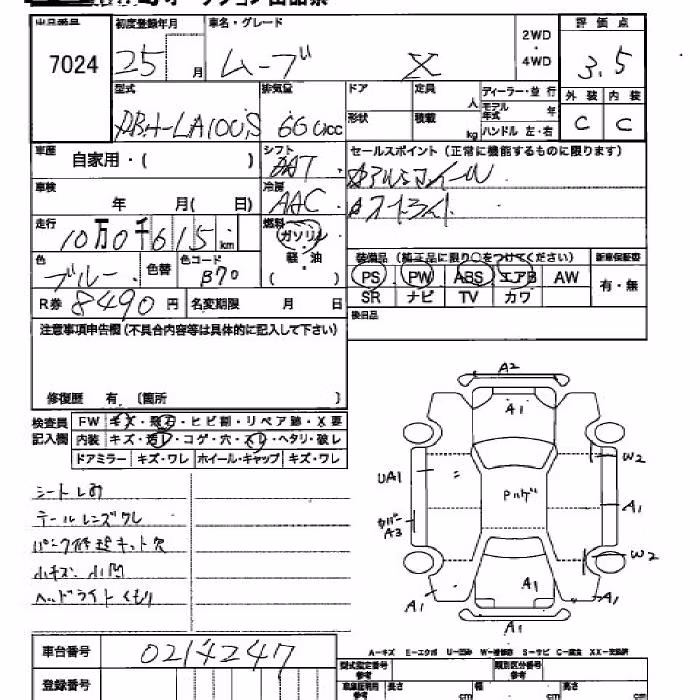 出品番号 初度登録年月 車名・グレード 2WD・4WD 評価点
7024 25 月 ムーブ X 3.5
型式 排気量 ドア 定員 人 ディーラー・並行 外装 内装
DBA-LA100S 660cc 形状 積載 kg モデル年式 年 ハンドル 左・右 C C
車歴 自家用・( ) シフト セールスポイント(正常に機能するものに限ります)
車検 年 月( 日) 冷房 AAC
走行 10万0千615km 燃料 ガソリン・軽油 ( )
色 ブルー 色替 色コード B70 装備品(純正品に限り○をつけてください) 新車保証書
PS PW ABS エアB AW 有・無
R券 8490円 名変期限 月 日 SR ナビ TV カワ
注意事項申告欄(不具合内容等は具体的に記入して下さい) 後日品
修復歴 有 〔箇所 〕
検査員記入欄 FW キズ・飛石・ヒビ割・リペア跡・X要
内装 キズ・汚レ・コゲ・穴・スレ・ヘタリ・破レ
ドアミラー キズ・ワレ ホイール・キャップ キズ・ワレ
シートしみ
テールレンズワレ
パンク修理キット欠
小キズ、小凹
ヘッドライトくもり
A2
A1
W2
UA1
Pハゲ
A1
カバー A3
W2
A1
A1
A1
A1
車台番号 0214247
登録番号
A-キズ E-エクボ U-凹み W-補修跡 S-サビ C-腐食 XX-交換済
型式指定番号 参考 類別区分番号 参考
長さ cm 幅 cm 高さ cm